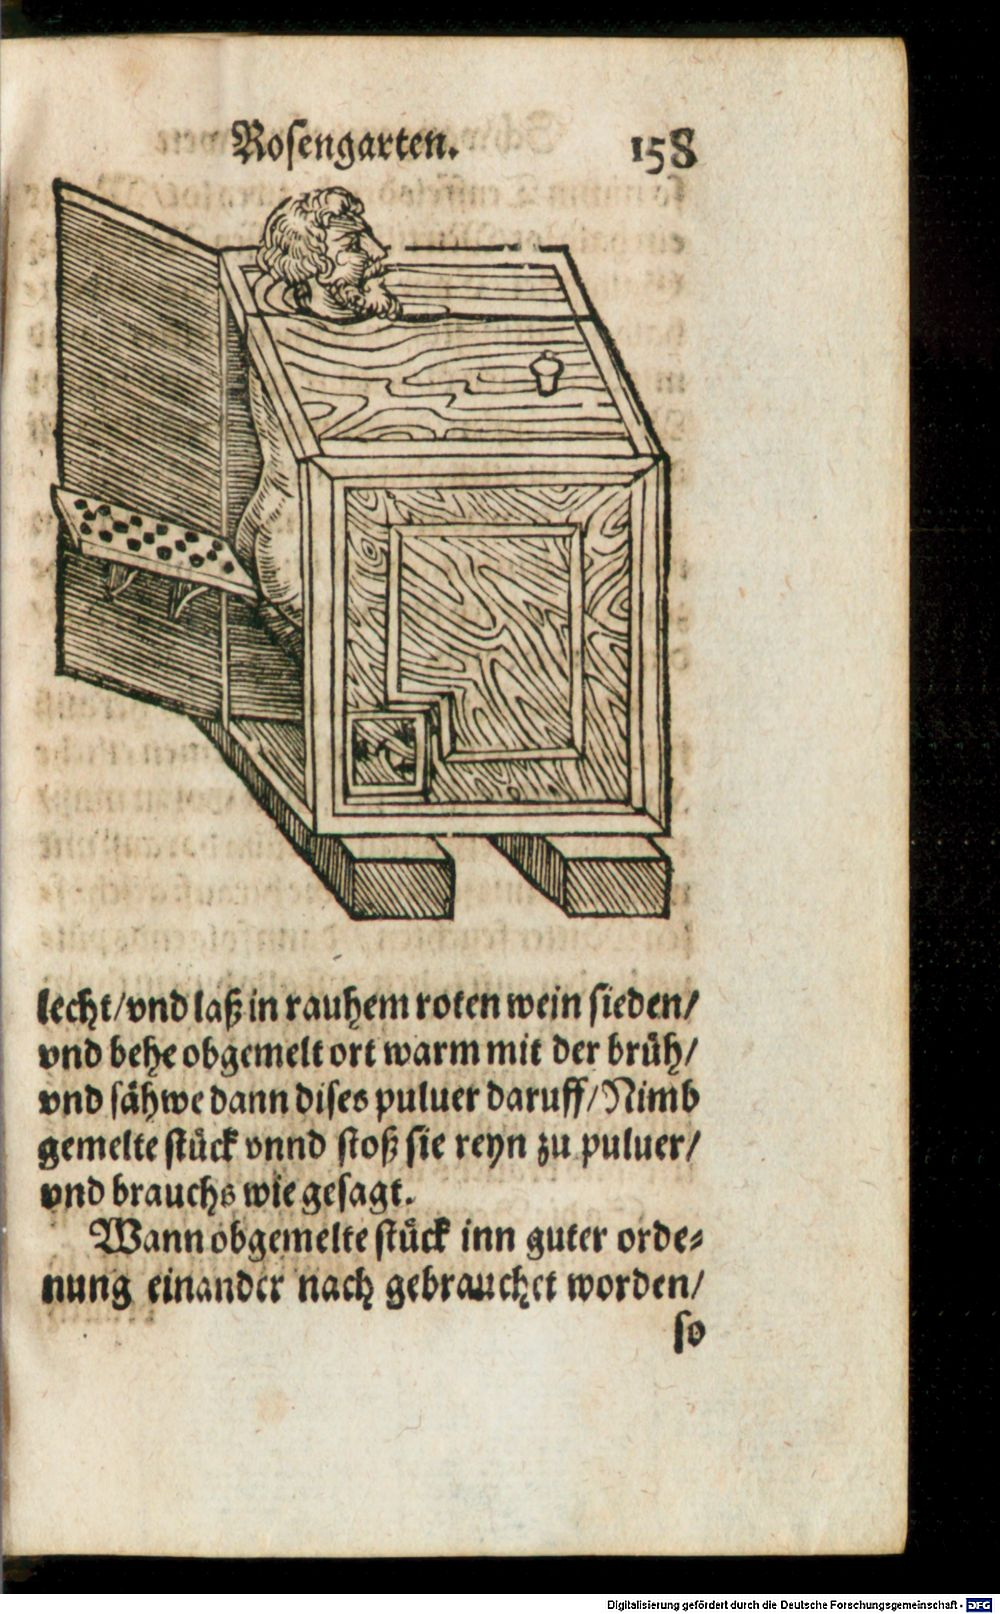 Rosengarten. 158
lecht/vnd laß in rauhem roten wein sieden/
vnd behe obgemelt ort warm mit der brüh/
vnd sähwe dann dises puluer daruff/Nimb
gemelte stück vnnd stoß sie reyn zu puluer/
vnd brauchs wie gesagt.
Wann obgemelte stück inn guter orde⸗
nung einander nach gebrauchet worden/
so
Digitalisierung gefördert durch die Deutsche Forschungsgemeinschaft - DFG